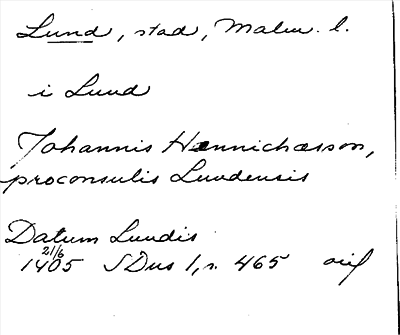 Lund, stad, Malm. l.
i Lund
Johannis Hennichæsson,
proconsulis Lundensis
Datum Lundis
21/6
1405 SDns 1, s. 465